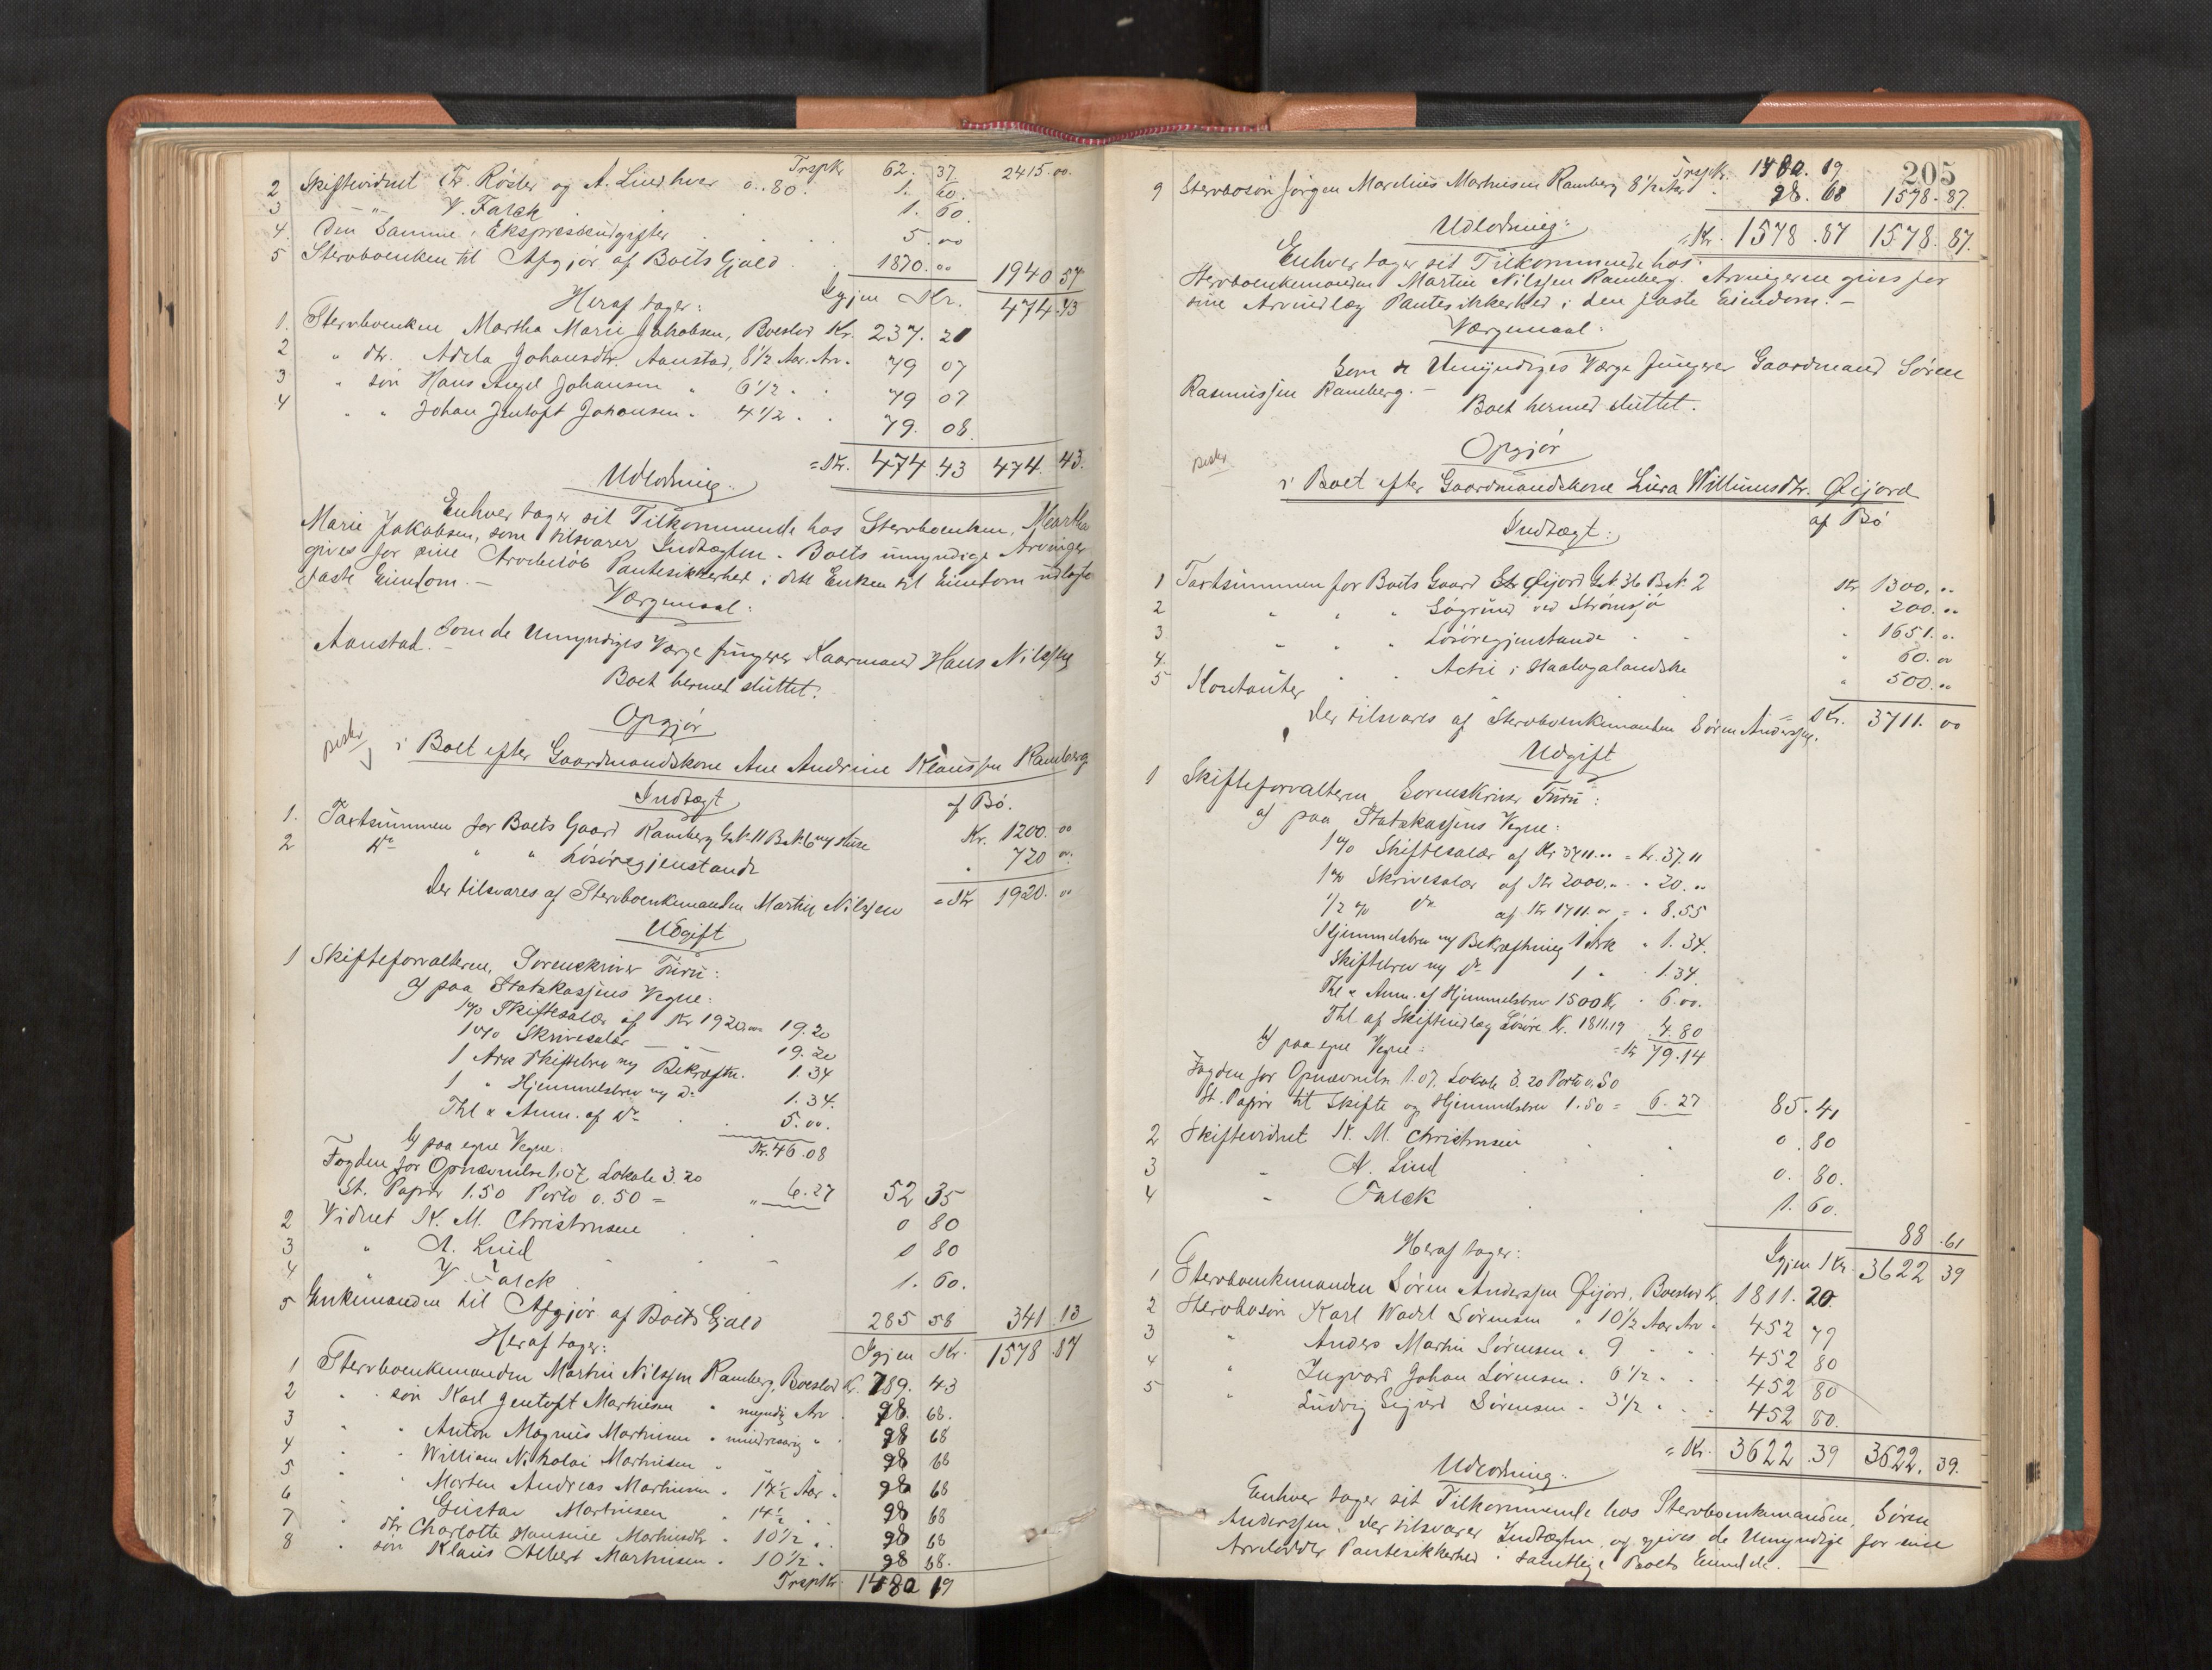 Trspkr 62. 37. 2415.00
2 Skiftevidnet Fr. Röster og A. Lind hver 0.80. 1. 60.
3 —"— V. Falck 1. 60
4. Den Samme i Ekspresseudgifter 5.00
5 Stervboenken til Afgjör af Boets Gjæld 1870.00 1940 57
Heraf tager: Igjen Kr. 474.43
1. Stervboenken Martha Marie Jakobsen, Boeslod Kr. 237. 21
2 " dtr. Adela Johansdtr. Aanstad, 8 1/2 Aar. Arv. 79 07
3 " sön Hans Angel Johansen " 6 1/2 " . 79 07
4 " " Johan Jentoft Johansen " 4 1/2 " . 79. 08
= Kr. 474.43 474. 43.
Udlodning:
Enhver tager sit Tilkommende hos Stervboenken, Martha
Marie Jakobsen, som tilsvarer Indtægten. Boets umyndige Arvinger
gives for sine Arvebelöb Pantesikkerhed i dett Enken til Eiendom udlagte
faste Eiendom. —
Værgemaal:
Som de Umyndiges Værge fungerer Kaarmand Hans Nilssen
Aanstad. —
Boet hermed sluttet.
Opgjör
i Boet efter Gaardmandskone Ane Andrine Klaussen Ramberg
af Bö.
Indtægt
1. Taxtsummen for Boets Gaard Ramberg G.N. 11 B.N. 6 m/ Huse Kr. 1200.00
2 Do " " Lösöregjenstande " 720 00.
Der tilsvares af Stervboenkemanden Martin Nilssen = Kr 1920.00
Udgift
1 Skifteforvalteren, Sorenskriver Furu:
a) paa Statskassens Vegne:
1% Skiftesalær af Kr 1920.00 19.20
1% Skrivesalær —"— 19.20
1 Ark Skiftebrev m/ Bekræftn. 1.34
1 " Hjemmelsbrev m/ Do 1.34.
Thl & Anm. af Do 5.00.
Kr. 46.08
b) paa egne Vegne:
Fogden for Opnævnelse 1.07, Lokale 3.20
St. Papir 1.50 Porto 0.50 = " 6.27 52 35
2 Vidnet K. M. Christensen 0 80
3 " A. Lind 0 80
4 " V. Falck 1. 60.
5 Enkemanden til Afgjör af Boets Gjæld 285 58 341.13
Heraf tager: Igjen Kr. 1578.87
1 Stervboenkemanden Martin Nilssen Ramberg, Boeslod Kr. 789. 43
2 " sön Karl Jentoft Martinsen " myndig Arv 98. 68.
3 " " Anton Magnus Martinsen " mindreaarig " 98 68
4 " " William Nikolai Martinsen " " 98 68
5 " " Morten Andreas Martinsen " 17 1/2 Aar " 98 68
6 " " Gustav Martinsen " 14 1/2 " 98 68
7 " dtr Charlotte Hansine Martinsdtr " 10 1/2 " 98 68
8 " sön Klaus Albert Martinsen " 10 1/2 " 98 68.
Trspkr. 1480 19
205
Trspkr. 1480. 19
9 Stervbosön Jörgen Marelius Martinsen Ramberg 8 1/2 Aar 98. 68 1578.87.
= Kr. 1578.87 1578.87.
Udlodning:
Enhver tager sit Tilkommende hos
Stervboenkemanden Martin Nilssen Ramberg. Arvingerne gives for
sine Arveudlæg Pantesikkerhed i den faste Eiendom. —
Værgemaal:
Som de Umyndiges Værge fungerer Gaardmand Sören
Rasmussen Ramberg. —
Boet hermed sluttet.
Opgjör
i Boet efter Gaardmandskone Liera Willumsdtr. Öijord
af Bö
Indtægt:
1 Taxtsummen for Boets Gaard Öijord G.N. 36 B.N. 2 Kr 1300.00
2 " " " Sögrund ved Strömsjö " 200.00
3 " " " Lösöregjenstande " 1651.00
4. " " Actie i Haalogalandske " 60.00
5 Kontanter " 500.00
Der tilsvares af Stervboenkemanden Sören Anderssen. = Kr. 3711. 00
Udgift
1 Skifteforvalteren Sorenskriver Furu:
a) paa Statskassens Vegne:
1% Skiftesalær af Kr 3711.00 = Kr. 37.11
1% Skrivesalær af Kr 2000.00 " 20.00
1/2 % Do af Kr 1711.00 = " 8.55
Hjemmelsbrev m/ Bekræftning 1 Ark " 1. 34.
Skiftebrev m/ Do 1 " " 1.34.
Thl & Anm. af Hjemmelsbrev 1500 Kr " 6.00.
Thl. af Skifteudlæg Lösöre Kr. 1811.19 4.80
= Kr 79.14
b) paa egne Vegne:
Fogden for Opnævnelse 1.07, Lokale 3.20 Porto 0.50
St. Papir til Skifte og Hjemmelsbrev 1.50 = 6.27 85.41
2 Skiftevidnet K. M. Christensen 0.80
3 " A. Lind 0. 80.
4 " Falck 1. 60.
88.61
Heraf tager: Igjen Kr. 3622 39
1 Stervboenkemanden Sören Anderssen Öijord, Boeslod Kr. 1811. 20.
2 Stervbosön Karl Wadel Sörensen " 10 1/2 Aar Arv " 452 79
3 " Anders Martin Sörensen " 9 " " 452 80
4 " Ingvard Johan Sörensen " 6 1/2 " " 452 80
5 " Ludvig Sigurd Sörensen " 3 1/2 " " 452 80.
= Kr. 3622.39 3622. 39.
Udlodning:
Enhver tager sit Tilkommende hos Stervboenkemanden, Sören
Anderssen, der tilsvarer Indtægten, og gives de Umyndige for sine
Arvelodder Pantesikkerhed i samtlige Boets Eiendele. —